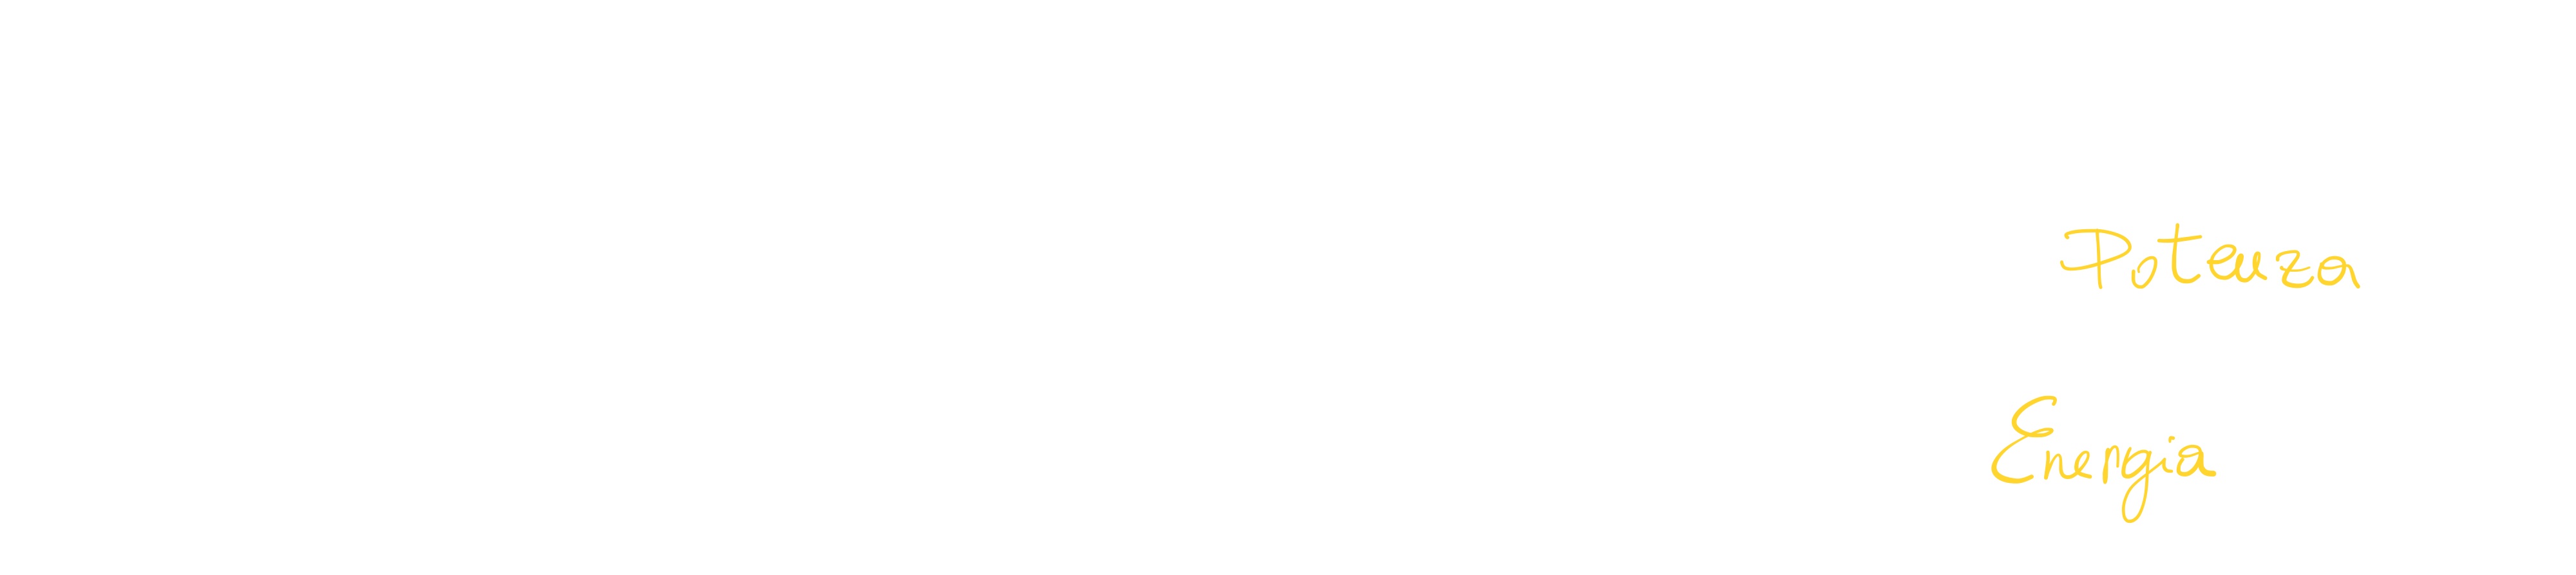 Potenza
Energia